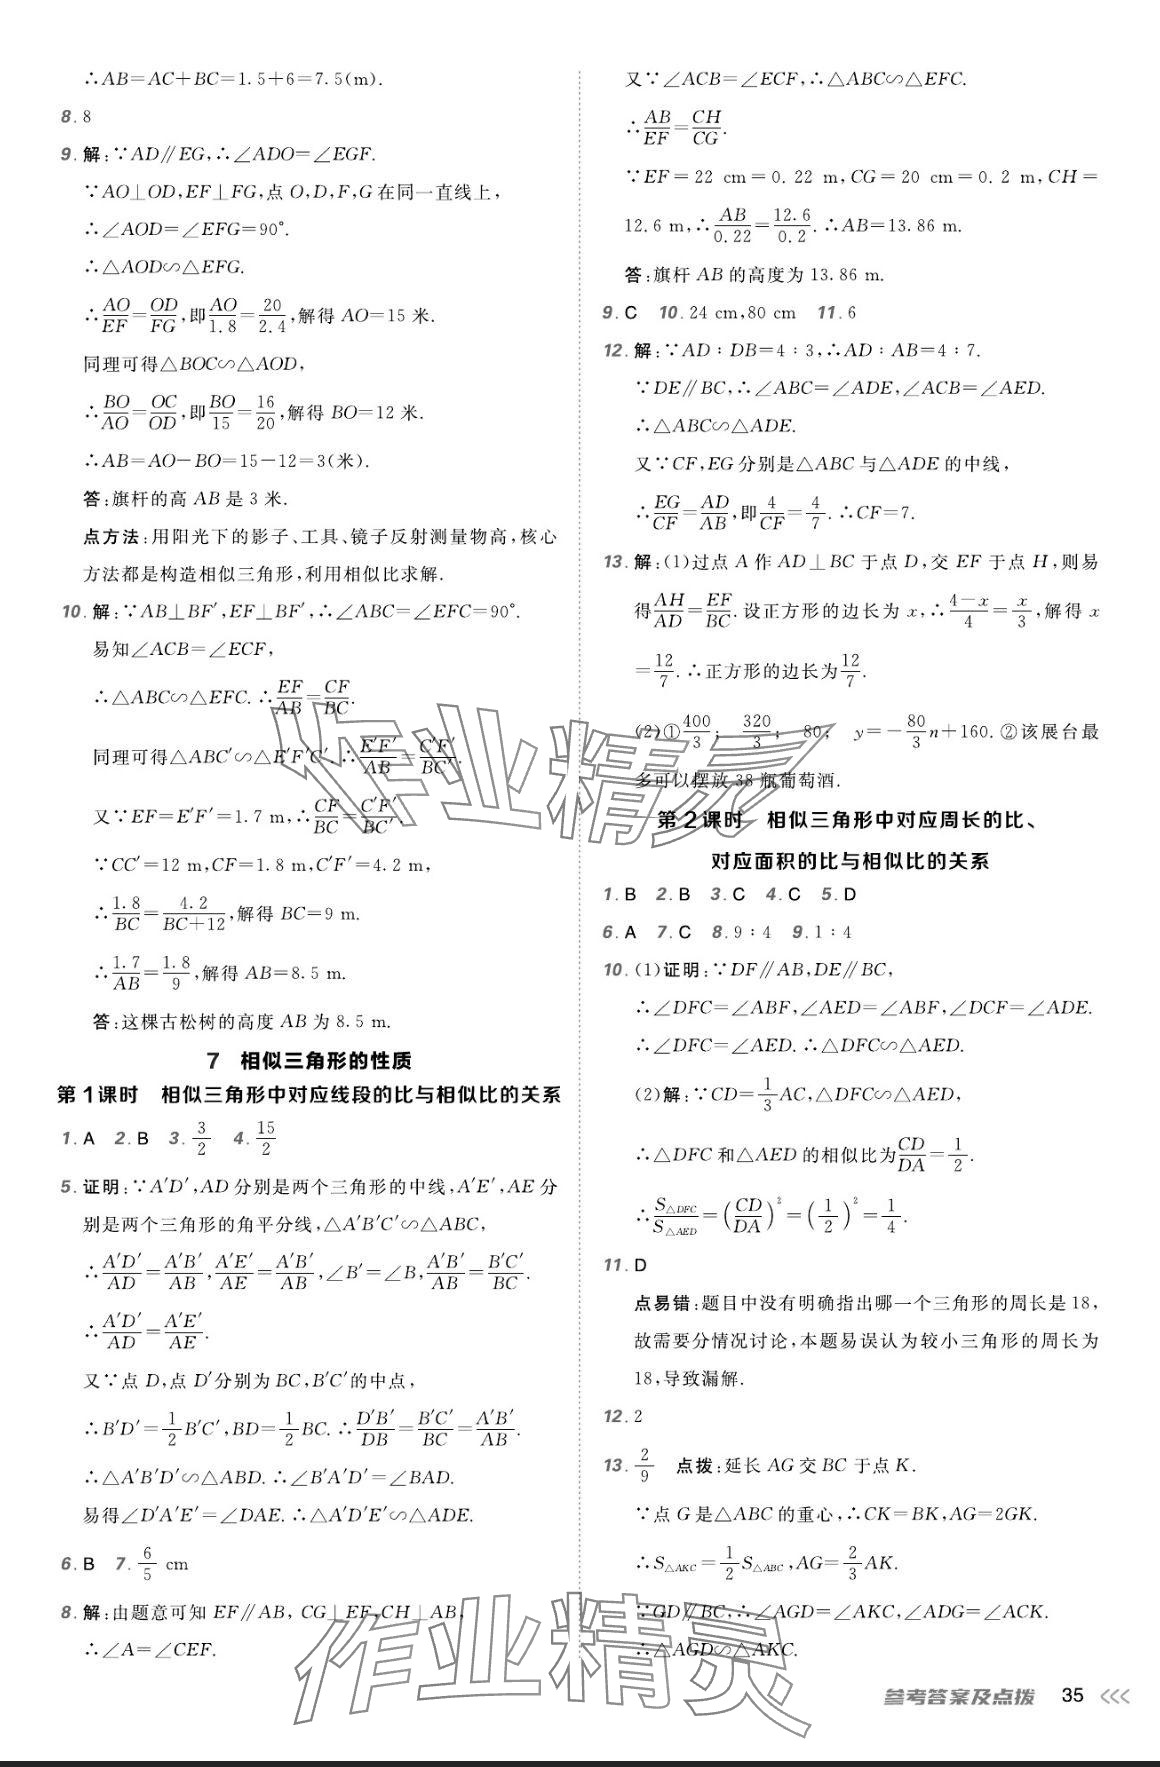 ∴AB=AC+BC=1.5+6=7.5(m).
8. 8
9. 解:∵AD∥EG,∴∠ADO=∠EGF.
∵AO⊥OD,EF⊥FG,点 O,D,F,G 在同一直线上,
∴∠AOD=∠EFG=90°.
∴△AOD∽△EFG.
∴AO/EF=OD/FG,即AO/1.8=20/2.4,解得 AO=15 米.
同理可得△BOC∽△AOD,
∴BO/AO=OC/OD,即BO/15=16/20,解得 BO=12 米.
∴AB=AO−BO=15−12=3(米).
答:旗杆的高 AB 是 3 米.
点方法:用阳光下的影子、工具、镜子反射测量物高,核心
方法都是构造相似三角形,利用相似比求解.
10. 解:∵AB⊥BF′,EF⊥BF′,∴∠ABC=∠EFC=90°.
易知∠ACB=∠ECF,
∴△ABC∽△EFC.∴EF/AB=CF/BC.
同理可得△ABC′∽△E′F′C′,∴E′F′/AB=C′F′/BC′.
又∵EF=E′F′=1.7 m,∴CF/BC=C′F′/BC′.
∵CC′=12 m,CF=1.8 m,C′F′=4.2 m,
∴1.8/BC=4.2/(BC+12),解得 BC=9 m.
∴1.7/AB=1.8/9,解得 AB=8.5 m.
答:这棵古松树的高度 AB 为 8.5 m.
7 相似三角形的性质
第1课时 相似三角形中对应线段的比与相似比的关系
1. A 2. B 3. 3/2 4. 15/2
5. 证明:∵A′D′,AD 分别是两个三角形的中线,A′E′,AE 分
别是两个三角形的角平分线,△A′B′C′∽△ABC,
∴A′D′/AD=A′B′/AB,A′E′/AE=A′B′/AB,∠B′=∠B,A′B′/AB=B′C′/BC.
∴A′D′/AD=A′E′/AE.
又∵点 D,点 D′分别为 BC,B′C′的中点,
∴B′D′=1/2B′C′,BD=1/2BC.∴D′B′/DB=B′C′/BC=A′B′/AB.
∴△A′B′D′∽△ABD.∴∠B′A′D′=∠BAD.
易得∠D′A′E′=∠DAE.∴△A′D′E′∽△ADE.
6. B 7. 6/5 cm
8. 解:由题意可知 EF∥AB, CG⊥EF,CH⊥AB,
∴∠A=∠CEF.
又∵∠ACB=∠ECF,∴△ABC∽△EFC.
∴AB/EF=CH/CG.
∵EF=22 cm=0.22 m,CG=20 cm=0.2 m,CH=
12.6 m,∴AB/0.22=12.6/0.2.∴AB=13.86 m.
答:旗杆 AB 的高度为 13.86 m.
9. C 10. 24 cm,80 cm 11. 6
12. 解:∵AD∶DB=4∶3,∴AD∶AB=4∶7.
∵DE∥BC,∴∠ABC=∠ADE,∠ACB=∠AED.
∴△ABC∽△ADE.
又∵CF,EG 分别是△ABC 与△ADE 的中线,
∴EG/CF=AD/AB,即4/CF=4/7.∴CF=7.
13. 解:(1)过点 A 作 AD⊥BC 于点 D,交 EF 于点 H,则易
得AH/AD=EF/BC.设正方形的边长为 x,∴(4−x)/4=x/3,解得 x
=12/7.∴正方形的边长为12/7.
(2)①400/3; 320/3; 80; y=−80/3n+160.②该展台最
多可以摆放 38 瓶葡萄酒.
第2课时 相似三角形中对应周长的比、
对应面积的比与相似比的关系
1. B 2. B 3. C 4. C 5. D
6. A 7. C 8. 9∶4 9. 1∶4
10. (1)证明:∵DF∥AB,DE∥BC,
∴∠DFC=∠ABF,∠AED=∠ABF,∠DCF=∠ADE.
∴∠DFC=∠AED.∴△DFC∽△AED.
(2)解:∵CD=1/3AC,△DFC∽△AED,
∴△DFC 和△AED 的相似比为CD/DA=1/2.
∴S△DFC/S△AED=(CD/DA)²=(1/2)²=1/4.
11. D
点易错:题目中没有明确指出哪一个三角形的周长是 18,
故需要分情况讨论,本题易误认为较小三角形的周长为
18,导致漏解.
12. 2
13. 2/9 点拨:延长 AG 交 BC 于点 K.
∵点 G 是△ABC 的重心,∴CK=BK,AG=2GK.
∴S△AKC=1/2S△ABC,AG=2/3AK.
∵GD∥BC,∴∠AGD=∠AKC,∠ADG=∠ACK.
∴△AGD∽△AKC.
参考答案及点拨 35
作业精灵
作业精灵